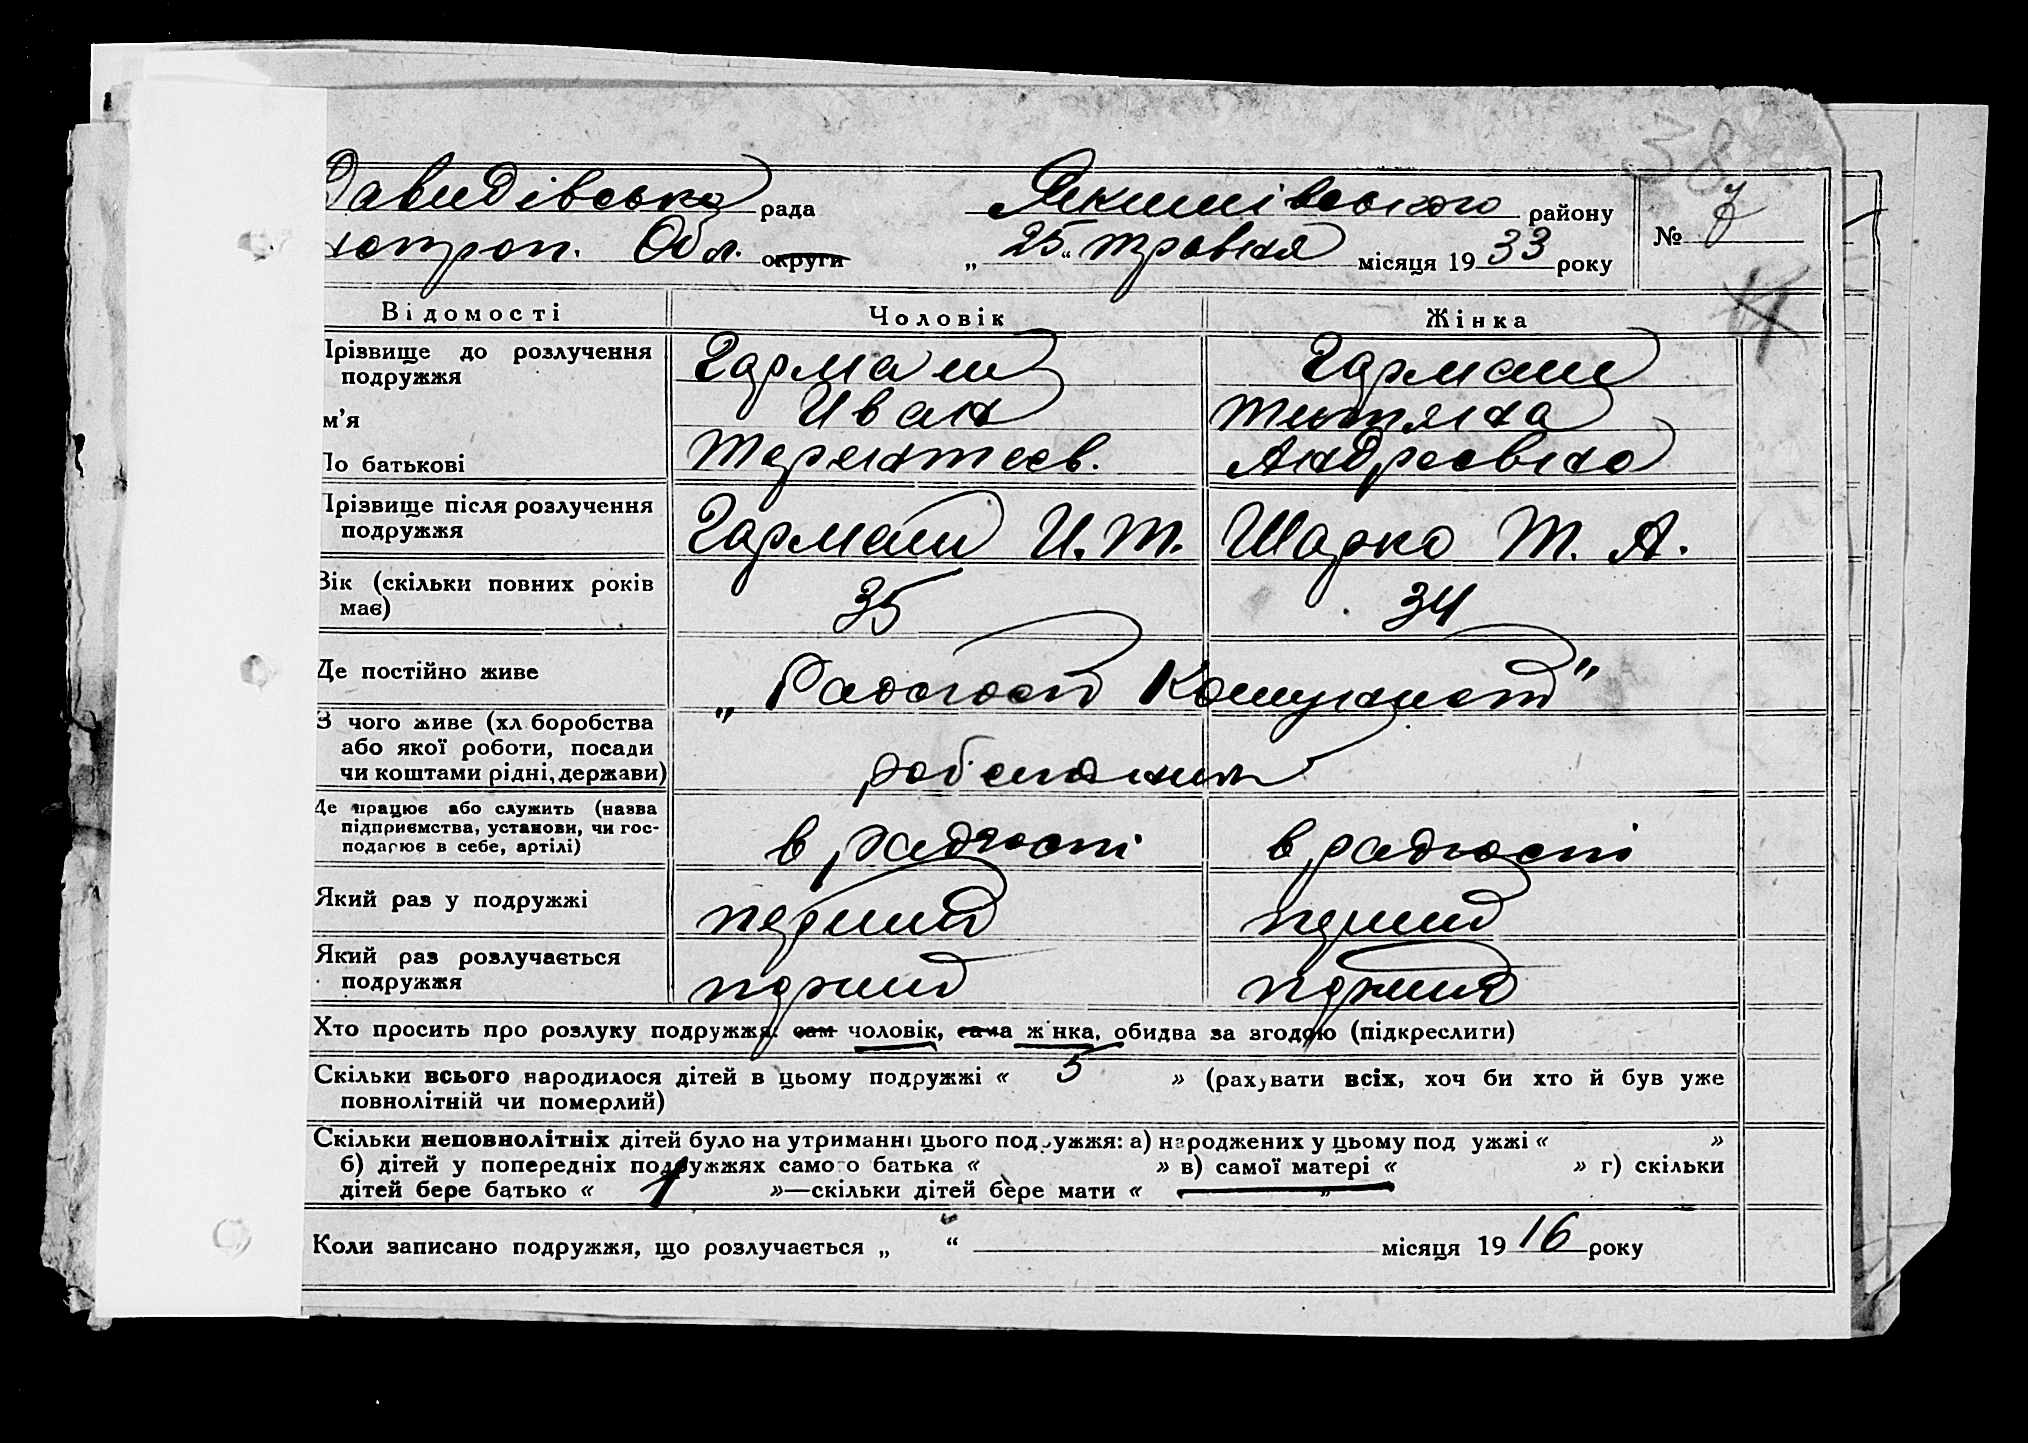 Давидівська рада Якимівського району
№
хопроп. Обл. округи „ 25 “ травня місяця 1933 року
Відомості Чоловік Жінка
Прізвище до розлучення Гармаш Гармаш
подружжя
м'я Иван Титяна
По батькові Терентеєв. Андреєвна
Прізвище після розлучення Гармаш И. Т. Шарко Т. А.
подружжя
Вік (скільки повних років 35 34
має)
Де постійно живе „Радгосп Комунист"
З чого живе (хл боробства
або якої роботи, посади
чи коштами рідні, держави)
Де працює або служить (назва в радгоспі в радгоспі
підприємства, установи, чи гос-
подарює в себе, артілі)
Який раз у подружжі перший перший
Який раз розлучається перший перший
подружжя
Хто просить про розлуку подружжя: сам чоловік, сама ж нка, обидва за згодою (підкреслити)
Скільки всього народилося дітей в цьому подружжі « 5 » (рахувати всіх, хоч би хто й був уже
повнолітній чи померлий)
Скільки неповнолітніх дітей було на утриманні цього подружжя: а) народжених у цьому под ужжі « »
б) дітей у попередніх подружжях самого батька « » в) самої матері « » г) скільки
дітей бере батько « 1 »—скільки дітей бере мати « »
Коли записано подружжя, що розлучається „ “ місяця 1916 року